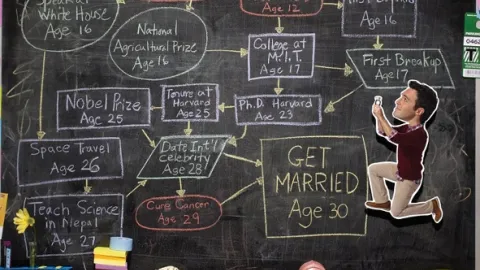 White House
Age 16
National
Agricultural Prize
Age 16
Age 12
Age 16
College at
M.I.T.
Age 17
First Breakup
Age 17
Nobel Prize
Age 25
Tenure at
Harvard
Age 25
Ph.D. Harvard
Age 23
Space Travel
Age 26
Date Int'l
celebrity
Age 28
GET
MARRIED
Age 30
Teach Science
in Nepal
Age 27
Cure Cancer
Age 29